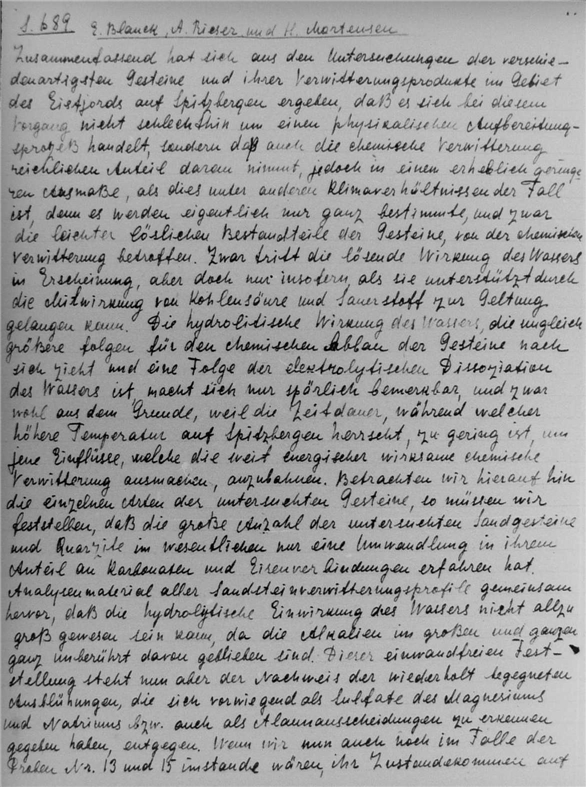 S. 689 E. Blanck, A. Rieser, und H. Mortensen
Zusammenfassend hat sich aus den Untersuchungen der verschie-
denartigsten Gesteine und ihrer Verwitterungsprodukte im Gebiet
des Eisfjords auf Spitzbergen ergeben, daß es sich bei diesem
Vorgang nicht schlechthin um einen physikalischen Aufbereitung-
sprozeß handelt, sondern daß auch die chemische Verwitterung
reichlichen Anteil daran nimmt, jedoch in einem erheblich geringe
ren Ausmaße, als dies unter anderen Klimaverhältnissen der Fall
ist, denn es werden eigentlich nur ganz bestimmte, und zwar
die leichter löslichen Bestandteile der Gesteine, von der chemischen
Verwitterung betroffen. Zwar tritt die lösende Wirkung des Wassers
in Erscheinung, aber doch nur insofern, als sie unterstützt durch
die Mitwirkung von Kohlensäure und Sauerstoff zur Geltung
gelangen kann. Die hydrolitische Wirkung des Wassers, die ungleich
größere folgen für den chemischen Abbau der Gesteine nach
sich zieht und eine Folge der elektrolytischen Dissoziation
des Wassers ist, macht sich nur spärlich bemerkbar, und zwar
wohl aus dem Grunde, weil die Zeitdauer, während welcher
höhere Temperatur auf Spitzbergen herrscht, zu gering ist, um
jene Einflüsse, welche die weit energischer wirksame chemische
Verwitterung ausmachen, anzubahnen. Betrachten wir hierauf hin
die einzelnen Arten der untersuchten Gesteine, so müssen wir
feststellen, daß die große Anzahl der untersuchten Sandgesteine
und Quarzite im wesentlichen nur eine Umwandlung in ihrem
Anteil an Karbonaten und Eisenverbindungen erfahren hat.
Analysenmaterial aller Sandsteinverwitterungsprofile gemeinsam
hervor, daß die hydrolytische Einwirkung des Wassers nicht allzu
groß gewesen sein kann, da die Alkalien im großen und ganzen
ganz unberührt davon geblieben sind. Dieser einwandfreien Fest-
stellung steht nun aber der Nachweis der wiederholt begegneten
Ausblühungen, die sich vorwiegend als Sulfate des Magnesiums
und Natriums bzw. auch als Alaunausscheidungen zu erkennen
gegeben haben, entgegen. Wenn wir nun auch noch im Falle der
Proben Nr. 13 und 15 imstande wären, ihr Zustandekommen auf